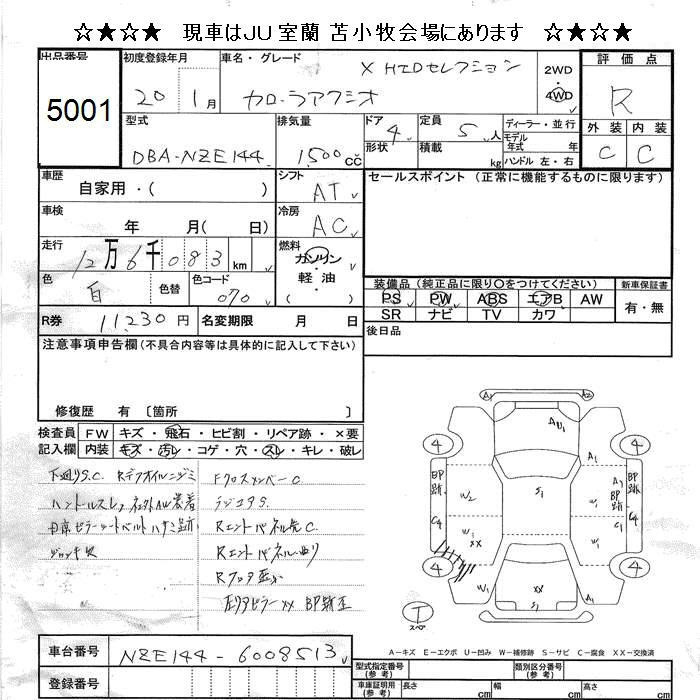 ☆★☆★ 現車はJU室蘭 苫小牧会場にあります ☆★☆★
出品番号 5001
初度登録年月 20 1月
車名・グレード X HIDセレクション
カローラアクシオ
2WD 4WD
評価点 R
外装 C 内装 C
型式 DBA-NZE144
排気量 1,500cc
ドア 4 形状
定員 5人 積載 kg
ディーラー・並行
モデル年式 年
ハンドル 左・右
車歴 自家用・( )
シフト AT
セールスポイント (正常に機能するものに限ります)
車検 年 月( 日)
冷房 AC
走行 12万6千083km
燃料 ガソリン・軽油
色 白 色替 色コード 070
装備品 (純正品に限り○をつけてください)
新車保証書 有・無
PS PW ABS エアB AW
SR ナビ TV カワ
R券 11,230円 名変期限 月 日
後日品
注意事項申告欄(不具合内容等は具体的に記入して下さい)
修復歴 有 〔箇所 〕
検査員記入欄
FW キズ・飛石・ヒビ割・リペア跡・×要
内装 キズ・汚レ・コゲ・穴・スレ・キレ・破レ
下廻りS.C. Rデフオイルニジミ
ハンドルスレ 社外AW装着
ジャッキ欠
FクロスメンバーC
ラジコアS
RエンドパネルC.
Rエンドパネル曲り
Rフロア
XX
A1 A2
AU1
A1
4 4
S1
W2
W1
C4 C4
W XX
W1
XX
4 4
W1 W1
T
スペア
A-キズ E-エクボ U-凹み W-補修跡 S-サビ C-腐食 XX-交換済
車台番号 NZE144-6008513
登録番号
型式指定番号(参考) 類別区分番号(参考)
車庫証明用(参考) 長さ cm 幅 cm 高さ cm